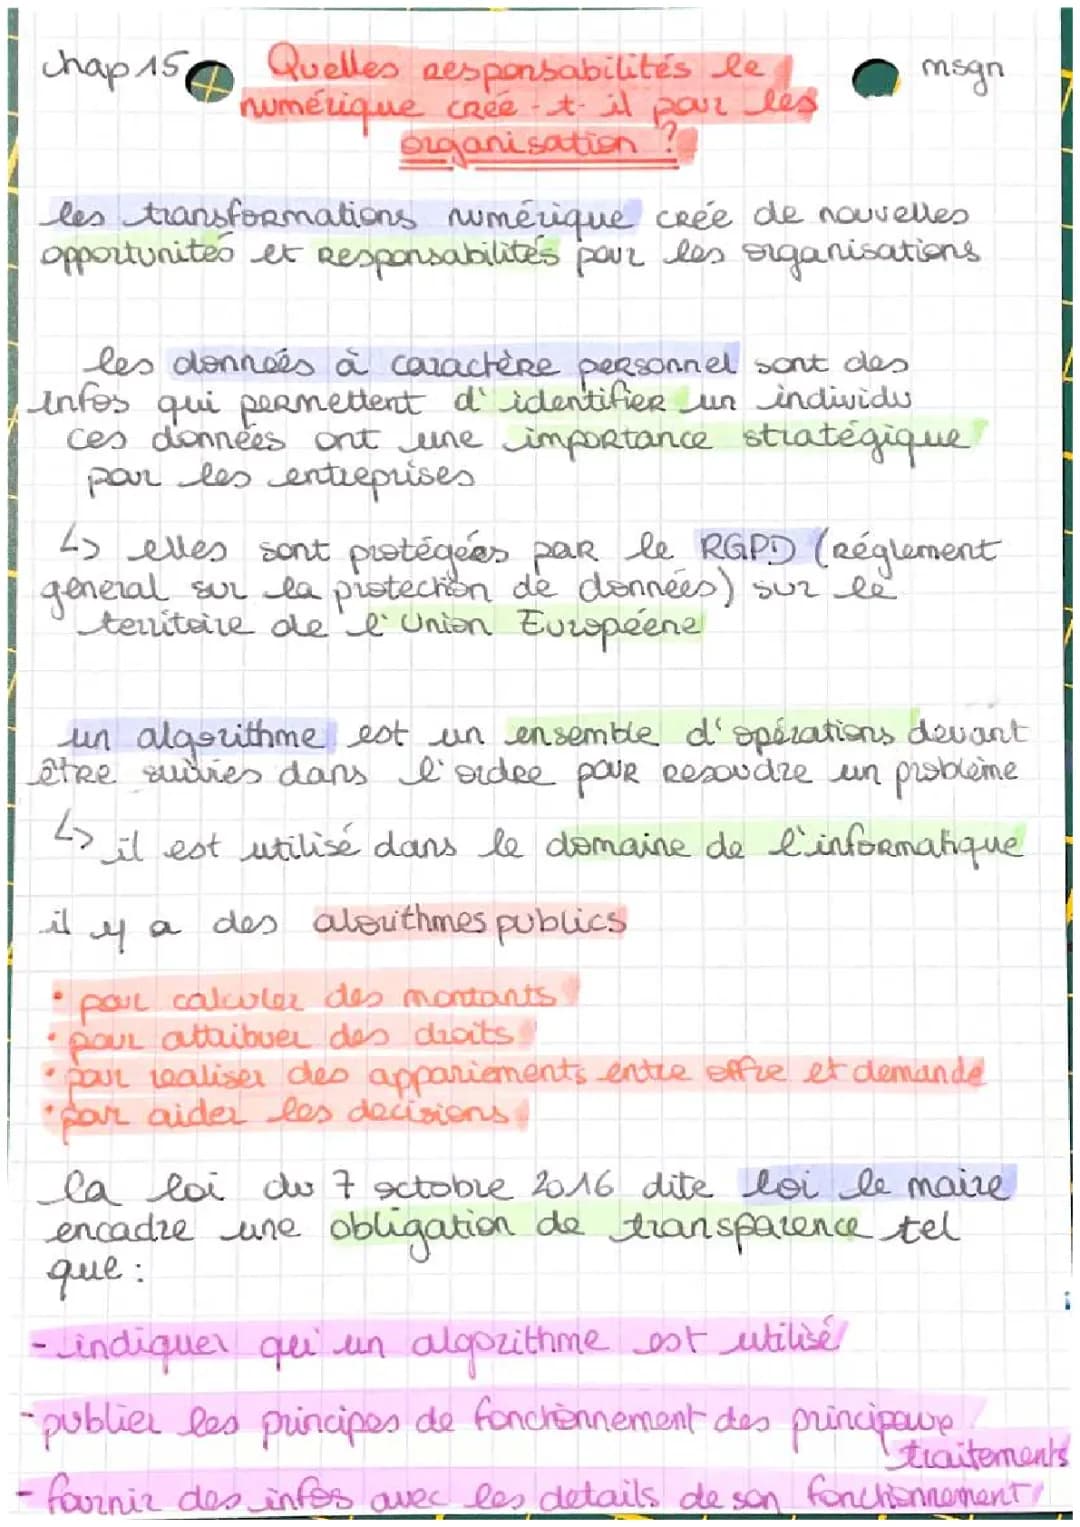 chap 15
Quelles responsabilités le
msgn
numérique créé-t-il pour les
organisation ?
les transformations numérique créé de nouvelles
opportunités et responsabilités pour les organisations
les données à caractère personnel sont des
infos qui permettent d'identifier un individu
ces données ont une importance stratégique
pour les entreprises
↳ elles sont protégées par le RGPD (réglement
général sur la protection de données) sur le
territoire de l'Union Européene
un algorithme est un ensemble d'opérations devant
être suivies dans l'ordre pour resoudre un problème
↳ il est utilisé dans le domaine de l'informatique
il y a des alorithmes publics
• pour calculer des montants
• pour attribuer des droits
• pour realiser des appariements entre offre et demande
• pour aider les decisions
la loi du 7 octobre 2016 dite loi le maire
encadre une obligation de transparence tel
que :
- indiquer qu'un algorithme est utilisé
- publier les principes de fonctionnement des principaux
traitements
- fournir des infos avec les details de son fonctionnement